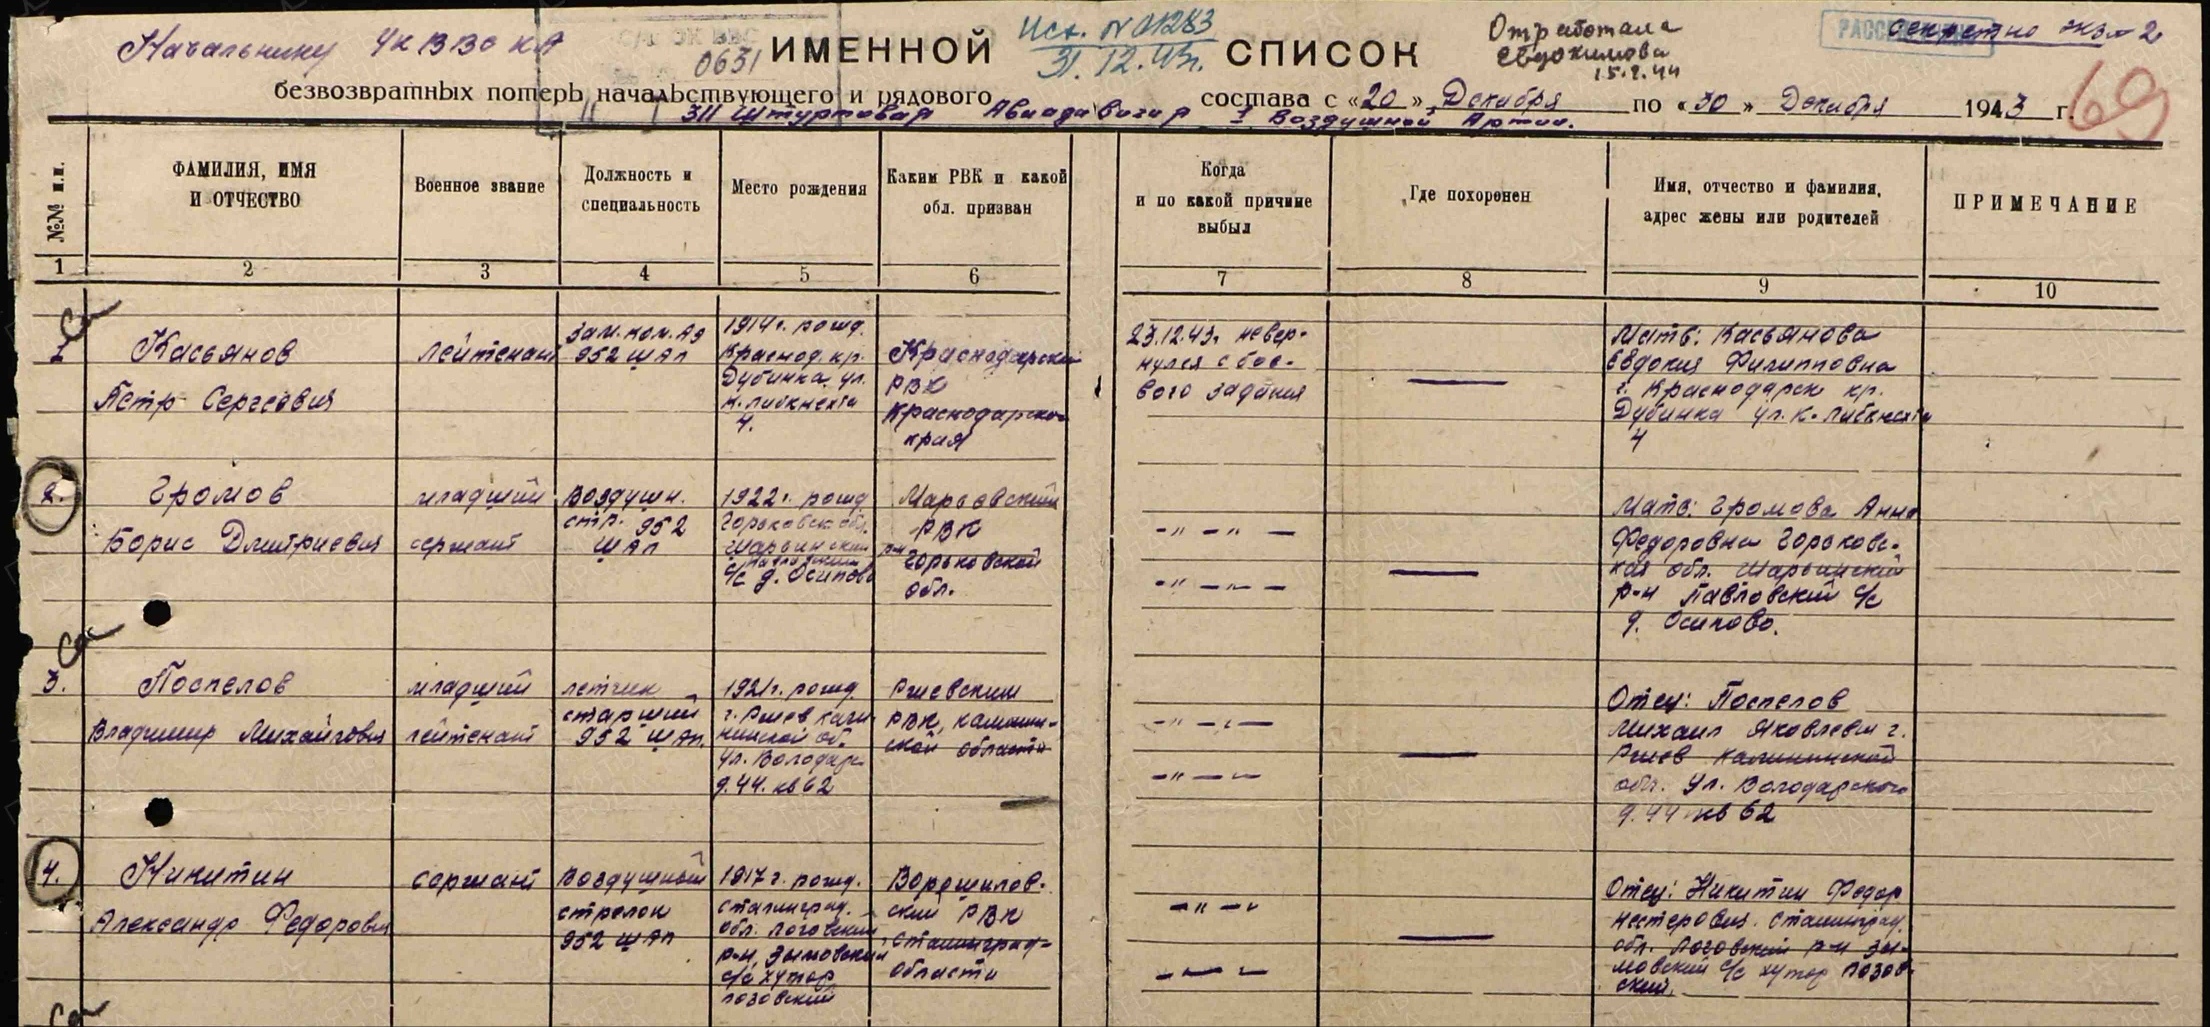 Начальнику УК ВВС КА
0631
ИМЕННОЙ СПИСОК
Исх. № 01283
31.12.43г.
Отработала
Евдокимова
15.2.44
Секретно экз-2
69
безвозвратных потерь начальствующего и рядового состава с «20» Декабря по «30» Декабря 1943 г.
311 Штурмовой Авиадивизии 1 Воздушной Армии.
№№ п.п.
ФАМИЛИЯ, ИМЯ И ОТЧЕСТВО
Военное звание
Должность и специальность
Место рождения
Каким РВК и какой обл. призван
Когда и по какой причине выбыл
Где похоронен
Имя, отчество и фамилия, адрес жены или родителей
ПРИМЕЧАНИЕ
1 2 3 4 5 6 7 8 9 10
1.
Касьянов
Петр Сергеевич
лейтенант
Зам. ком. АЭ
952 ШАП
1914г. рожд.
Краснод. кр.
Дубинка ул.
К. Либкнехта
4.
Краснодарский
РВК
Краснодарского
края
23.12.43г. невер-
нулся с бое-
вого задания
—
Мать: Касьянова
Евдокия Филипповна
г. Краснодарск кр.
Дубинка ул. К. Либкнехта
4
2.
Громов
Борис Дмитриевич
младший
сержант
Воздушн.
стр. 952
ШАП
1922г. рожд.
Горьковск обл.
Шарьинский
Павловский
с/с д. Осипово
РВК
Горьковской
обл.
—"—"—
—"—"—
—
Мать: Громова Анна
Федоровна Горьковс-
кая обл. Шарьинский
р-н Павловский с/с
д. Осипово.
3.
Поспелов
Владимир Михайлович
младший
лейтенант
летчик
старший
952 ШАП.
1921г. рожд.
г. Ржев Кали-
нинской об.
ул. Володарс
д.44. кв 62
Ржевским
РВК, Калинин-
ской области
—"—"—
—"—"—
—
Отец: Поспелов
Михаил Яковлевич г.
Ржев Калининской
обл. Ул. Володарского
д. 44 кв 62
4.
Никитин
Александр Федорович
сержант
Воздушный
стрелок
952 ШАП
1917г. рожд.
Сталинград.
обл. Логовский
р-н,
с/с хутор
Ворошилов-
ский РВК
Сталинград-
области
—"—"—
—"—"—
—
Отец: Никитин Федор
Нестерович. Сталинград.
обл. Логовский р-н
мовский с/с хутор
ский.